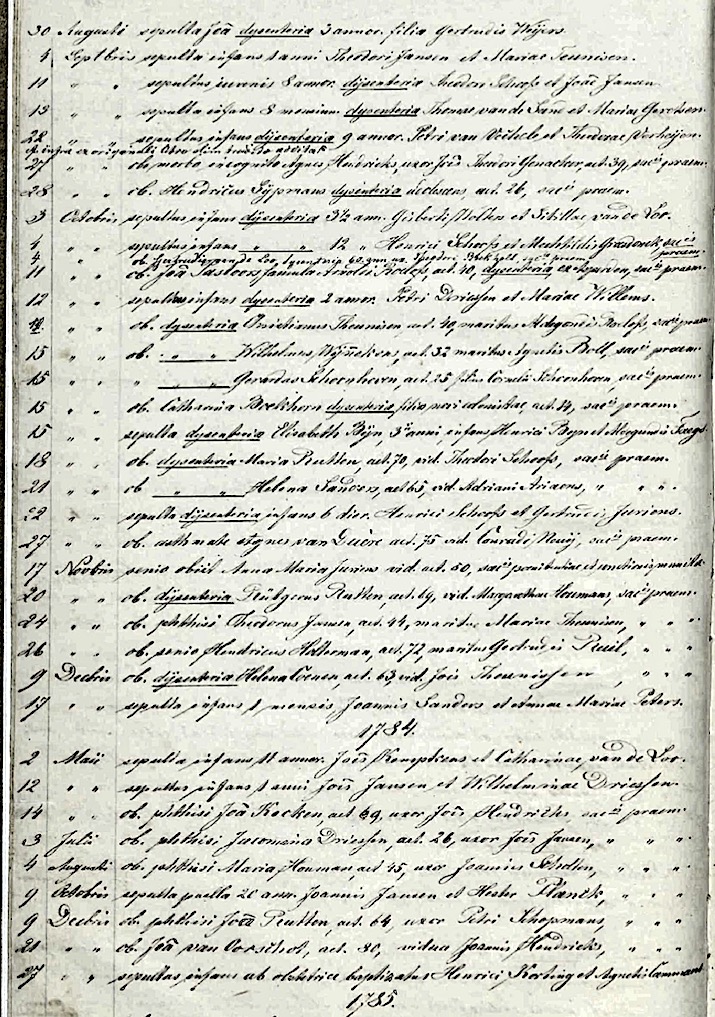 30 Augusti sepulta Joã dysenteria 3 annor. filia Gertrudis Weijers.
4 Septbris sepulta infans 1 anni Theodori Jansen et Mariae Teunissen.
11 " " sepultus juvenis 8 annor. dijsenteria Theodori Schoofs et Joãe Jansen
13 " " sepulta infans 8 mensium dysenteria Thomae van de Sand et Mariae Geertsen.
22 " " sepultus infans dijsenteria 9 annor. Petri van Voithels et Theodorae Verheijen.
27 " " ob. morbo incognito Agnes Hendricks, uxor Joïs Theodori Genacker, aet. 39, sacis praem.
28 " " ob. Hendricus Sijpmans dysenteria adolescens, aet. 26, sacis praem.
3 Octobris sepultus infans dijsenteria 3½ ann. Gisberti Nolten et Sibillae van de Loo.
4 " " sepultus infans " " 12 " Henrici Schoofs et Mechtildis sacis praem.
11 " " ob. Joã famula Arnoldi aet. 40, dysenteria sacis praem.
12 " " sepultus infans dysenteria 2 annor. Petri Driessen et Mariae Willems.
" " ob. dysenteria Christianus Theunissen, aet. 40, maritus sacis praem
15 " " ob. " " Wilhelmus aet. 32 maritus Agnetis Boll, sacis praem.
15 " " " " Gerardus Schoonhoven, aet. 25 filius Cornelii Schoonhoven, sacis praem.
15 " " ob. Catharina dysenteria filia aet. 14, sacis praem.
15 " " sepulta dysenteria Elisabeth Bijn, 3 anni infans Henrici Byn et
18 " " ob. dysenteria Maria Rutten, aet. 70, vid. Theodori Schoofs, sacis praem.
21 " " ob " " Helena Sanders, aet 65, vid. Adriani Ariaens, " " ".
22 " " sepulta dijsenteria infans 6 dier. Henrici Schoofs et Gertrudis Juriens.
27 " " ob. asthmate Agnes van aet. 75 vid. Conradi sacis praem.
17 Novbris senio obiit Anna Maria Juriens vid. aet. 50, sacis
20 " " ob. dijsenteria Rutgerus Rutten, aet. 69, vid. Margarethae Houmans, sacis praem.
24 " " ob. phthisi Theodorus Jansen, aet. 44, maritus Mariae Theunissen, " " "
26 " " ob. senio Hendricus Holterman, aet. 72, maritus Gertrudis " " "
9 Decbris ob. dijsenteria Helena Coenen, aet. 63, vid. Joïs Theunissen " " "
17 " " sepulta infans 1 mensis Joannis Sanders et Annae Mariae Peters.
1784.
2 Maii sepulta infans 11 annor. Joïs Kempkens et Catharinae van de Loo.
12 " " sepultus infans 1 anni Joïs Jansen et Wilhelminae Driessen.
14 " " ob. phthisi Joã Kocken aet. 69, uxor Joïs Hendricks, sacis praem.
3 Julii ob. phthisi Jacomina Driessen, aet. 26, uxor Joïs Jansen, " " "
4 Augusti ob. phthisi Maria Houman aet 45, uxor Joannis Scholten, " " "
9 Octobris sepulta puella 20 ann. Joannis Jansen et Hester Planck, " " "
9 Decbris ob. phthisi Joã Rutten, aet. 64, uxor Petri Schopmans, " " "
21 " " ob. Joã van Oorschot, aet. 80, vidua Joannis Hendricks, " " "
27 " " sepultus infans ab obstetrice baptizatus Henrici Korting et Agnetis
1785.